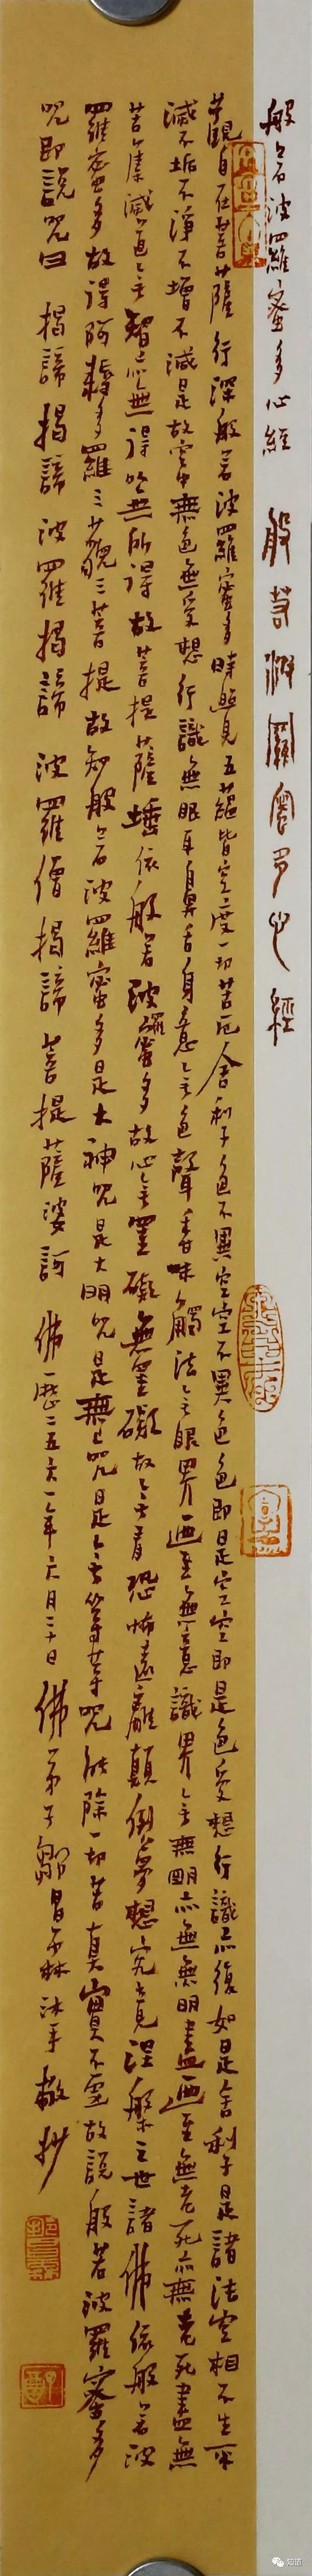 般若波羅蜜多心經 般若波羅蜜多心經
觀自在菩薩行深般若波羅蜜多時照見五蘊皆空度一切苦厄舍利子色不異空空不異色色即是空空即是色受想行識亦復如是舍利子是諸法空相不生不
滅不垢不淨不增不減是故空中無色無受想行識無眼耳鼻舌身意無色聲香味觸法無眼界乃至無意識界無無明亦無無明盡乃至無老死亦無老死盡無
苦集滅道無智亦無得以無所得故菩提薩埵依般若波羅蜜多故心無罣礙無罣礙故無有恐怖遠離顛倒夢想究竟涅槃三世諸佛依般若波
羅蜜多故得阿耨多羅三藐三菩提故知般若波羅蜜多是大神咒是大明咒是無上咒是無等等咒能除一切苦真實不虛故說般若波羅蜜多
咒即說咒曰 揭諦揭諦 波羅揭諦 波羅僧揭諦 菩提薩婆訶 佛歷二五六一年六月二十日 佛弟子鄒昌霖沐手敬抄
知道